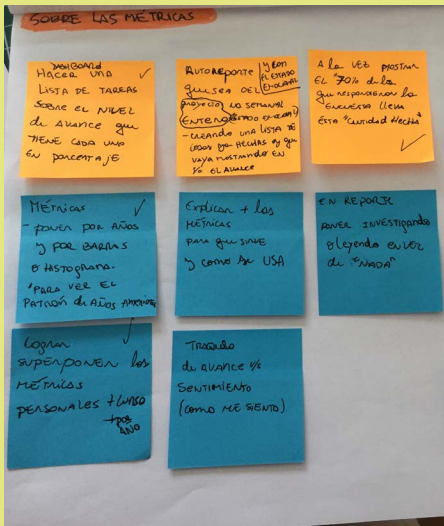 SOBRE LAS MÉTRICAS
DASHBOARD
HACER UNA
LISTA DE TAREAS
SOBRE EL NIVEL
de AVANCE que
TIENE CADA UNO
EN PORCENTAJE
AUTOREPORTE
y con
EL ESTADO
EMOCIONAL
que SEA DEL
proyecto
NO SEMANAL
ENTERO
- CREANDO UNA LISTA DE
COSAS ya HECHAS y que
VAYA MOSTRANDO EN
% EL AVANCE
A la VEZ MOSTRAR
EL "70% de los
que RESPONDIERON la
ENCUESTA lleva
ESTA "CANTIDAD HECHA"
MÉTRICAS
- poner POR AÑOS
y POR BARRAS
O HISTOGRAMA.
"PARA VER EL
PATRÓN de AÑOS ANTERIORES
Explicar + las
MÉTRICAS
PARA que SIRVE
y como se USA
EN REPORTE
PONER INVESTIGANDO
o leyendo EN VEZ
de "NADA"
Lograr
SUPERPONER las
MÉTRICAS
PERSONALES + CURSO
+ POR
AÑO
de AVANCE v/s
SENTIMIENTO
(como ME SIENTO)